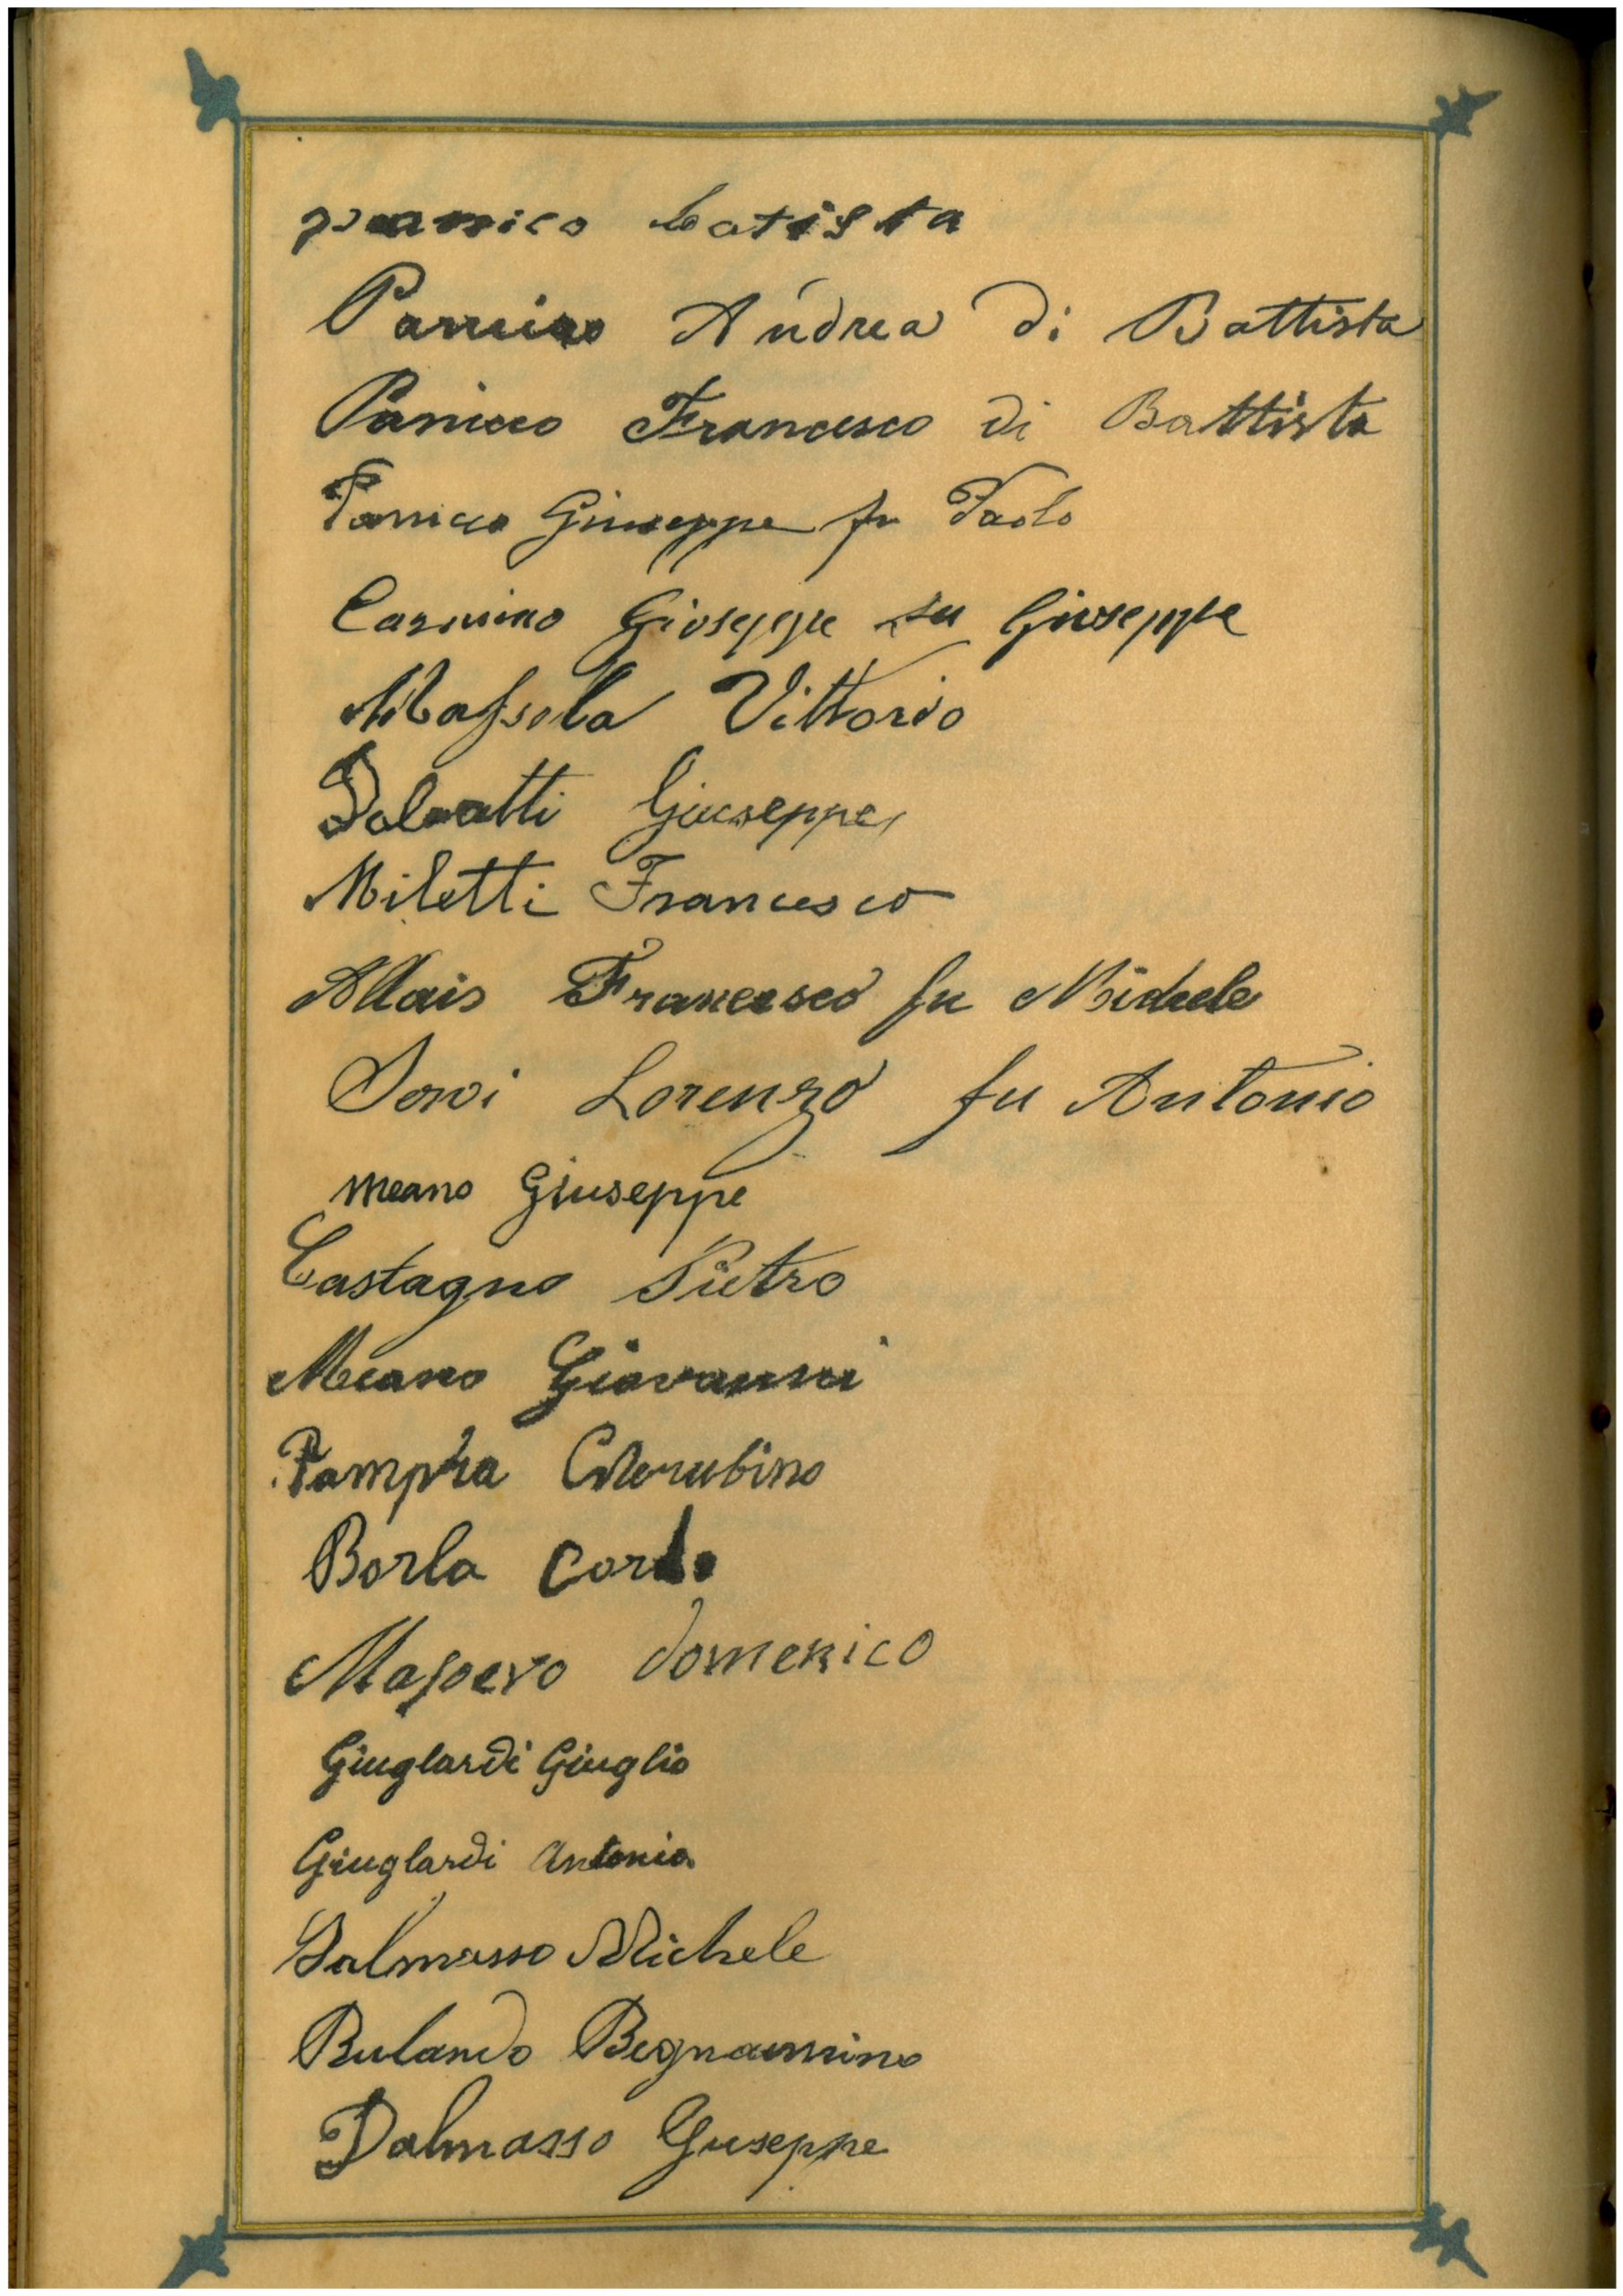 panico batista
Panicco Andrea di Battista
Panicco Francesco di Battista
Panicco Giuseppe fu Paolo
Gioseppe fu Giuseppe
Massola Vittorio
Giuseppe
Miletti Francesco
Allais Francesco fu Michele
Lorenzo fu Antonio
Meano Giuseppe
Castagno Pietro
Meano Giovanni
Cherubino
Borla Carlo
Masoero Domenico
Giuglardi Giuglio
Giuglardi Antonio
Dalmasso Michele
Bulando Begnamino
Dalmasso Giuseppe